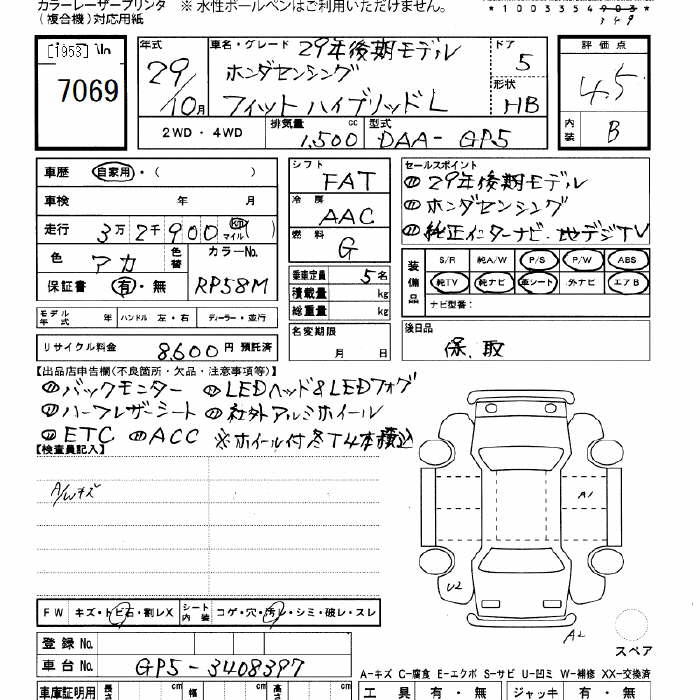 カラーレーザープリンタ ※ 水性ボールペンはご利用いただけません。
(複合機)対応用紙
*1003354903*
349
[1953]
7069
年式 29/10月
車名・グレード 29年後期モデル
ホンダセンシング
フィットハイブリッドL
ドア 5
形状 HB
2WD・4WD
排気量 1,500 cc 型式 DAA-GP5
評価点 4.5
内装 B
車歴 自家用・( )
車検 年 月
走行 3万2千900 km マイル( )
色 アカ 色替 カラーNo. RP58M
保証書 有・無
モデル年式 年 ハンドル 左・右 ディーラー・並行
リサイクル料金 8,600円 預託済
シフト FAT
冷房 AAC
燃料 G
乗車定員 5名
積載量 kg
総重量 kg
名変期限 月 日
セールスポイント
① 29年後期モデル
② ホンダセンシング
③ 純正インターナビ・地デジTV
装備品 S/R 純A/W P/S P/W ABS
純TV 純ナビ 革シート 外ナビ エアB
ナビ型番:
後日品
保、取
【出品店申告欄(不良箇所・欠品・注意事項等)】
バックモニター LEDヘッド&LEDフォグ
ハーフレザーシート 社外アルミホイール
ETC ACC ※ホイール付冬T4本積込
【検査員記入】
A/Wキズ
A1
U2
A2
スペア
FW キズ・トビ石・割レX シート内装 コゲ・穴・汚レ・シミ・破レ・スレ
登録No.
車台No. GP5-3408397
A-キズ C-腐食 E-エクボ S-サビ U-凹ミ W-補修 XX-交換済
車庫証明用 長さ cm 幅 cm 高さ cm
工具 有・無 ジャッキ 有・無